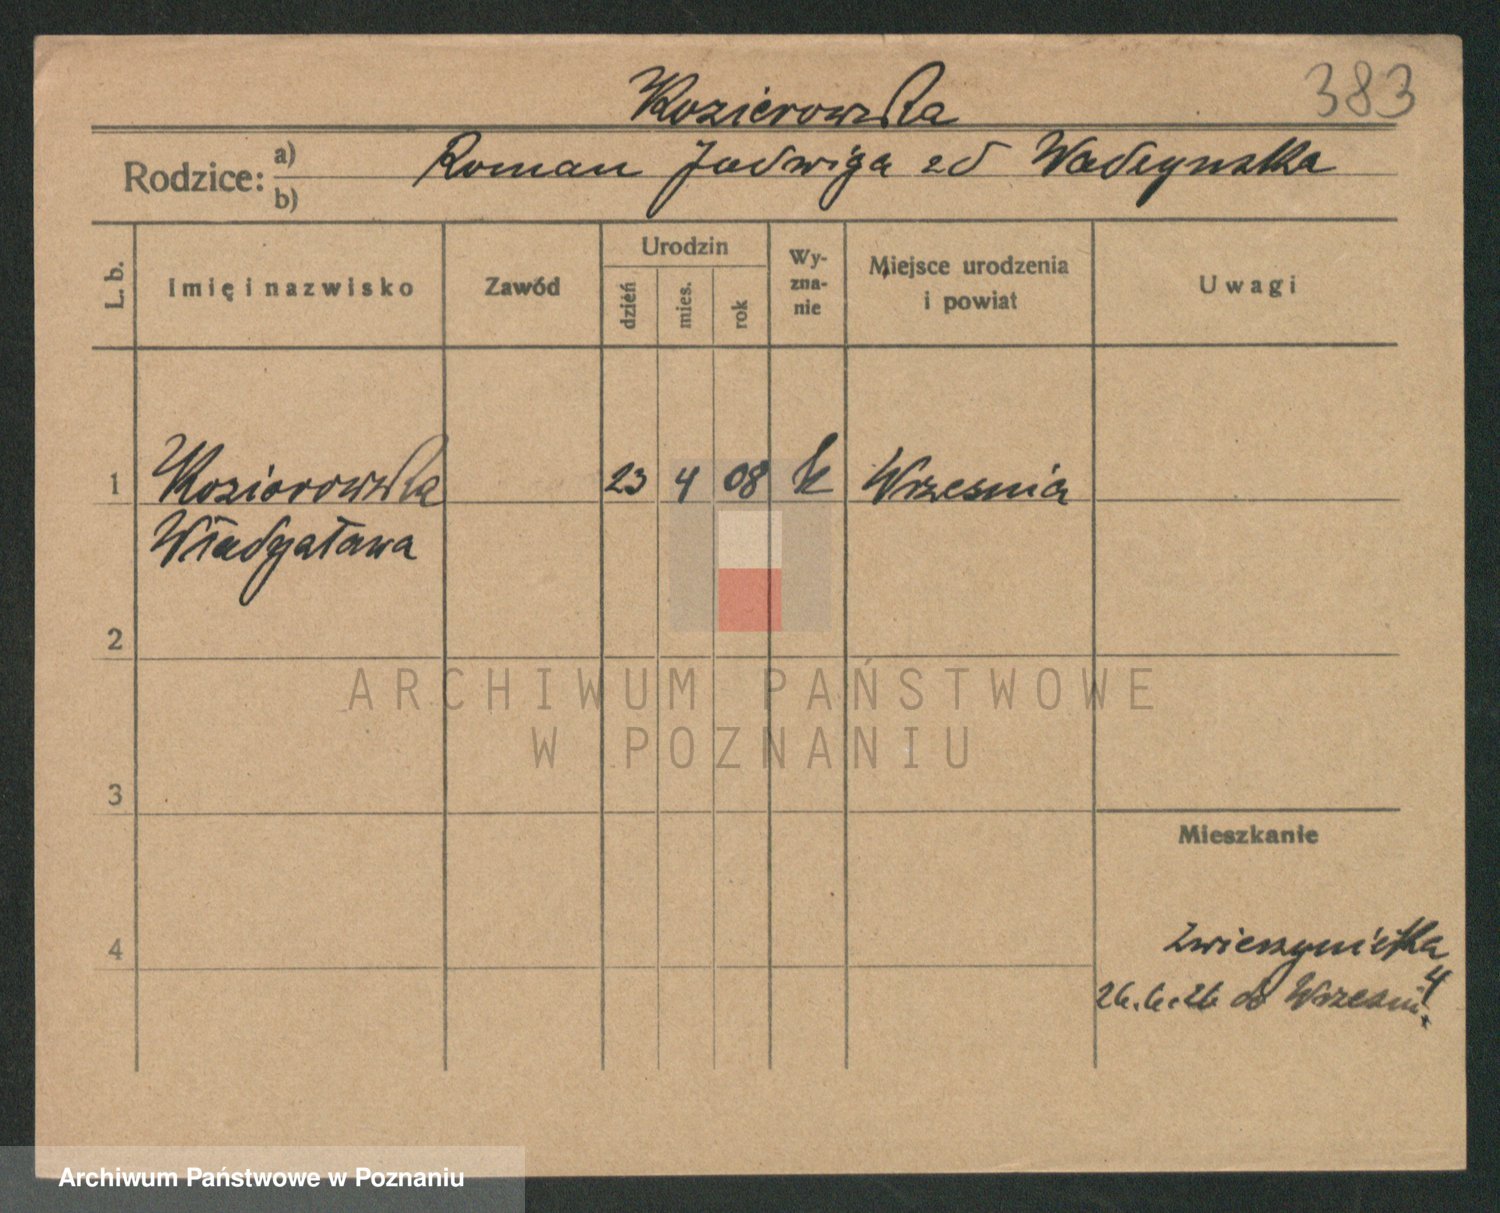 383
Kozierowska
Rodzice: a) b) Roman Jadwiga zd
L. b. Imię i nazwisko Zawód Urodzin dzień mies. rok Wyznanie Miejsce urodzenia i powiat Uwagi
1 Kozierowska 23 4 08 k Wrzesnia
Władysława
2
ARCHIWUM PAŃSTWOWE
W POZNANIU
3
Mieszkanie
4 Zwierzyniecka
4
26.6.26 do
Archiwum Państwowe w Poznaniu